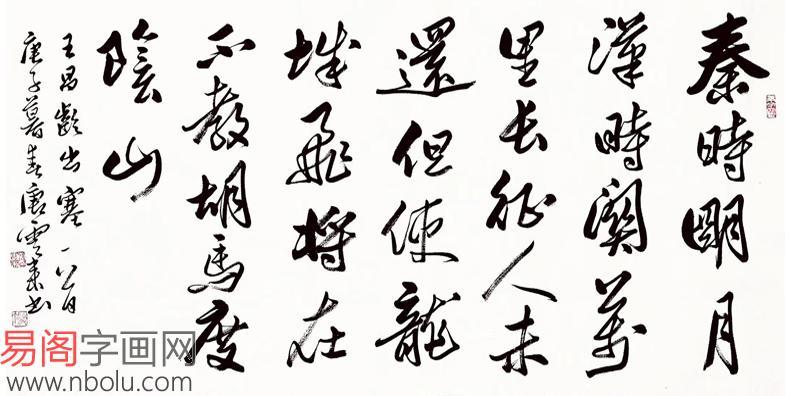 秦時明月
漢時關萬
里長征人未
還但使龍
城飛將在
不教胡馬度
陰山
王昌齡出塞一首
庚子暮春唐雲來書
易阁字画网
www.nbolu.com